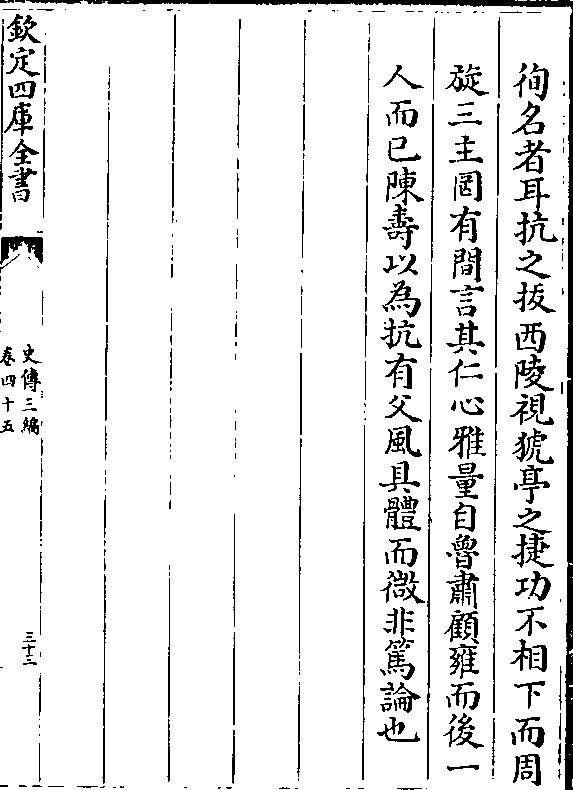 徇名者耳抗之拔西陵視猇亭之捷功不相下而周
旋三主罔有間言其仁心雅量自魯肅顧雍而後一
人而已陳壽以為抗有父風具體而微非篤論也
欽定四庫全書
史傳三編
卷四十五
三十三